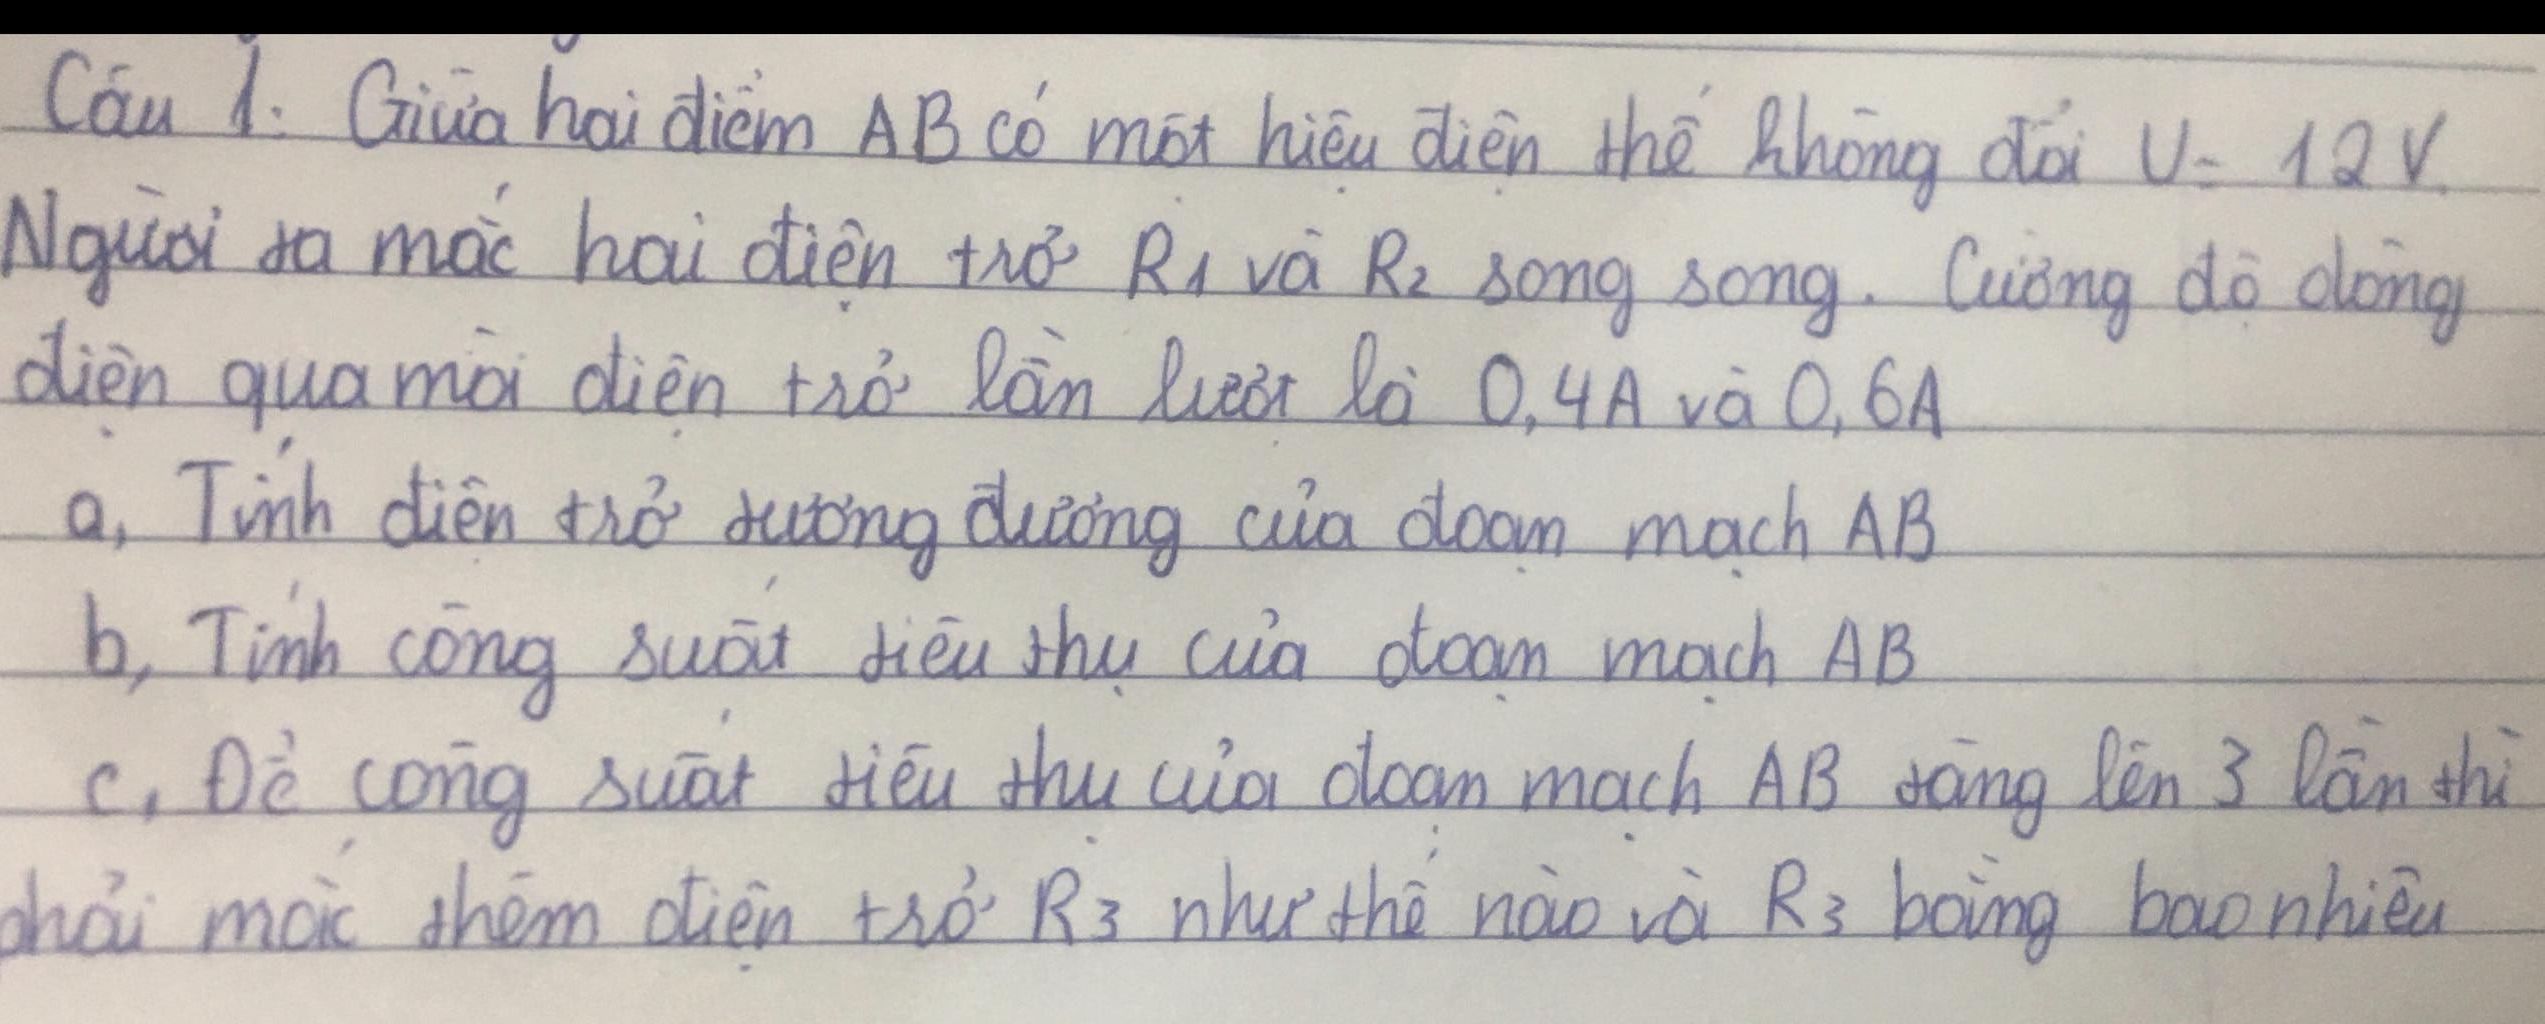 Câu 1. Giữa hai điểm AB có một hiệu điện thế không đổi U= 12V.
Người ta mắc hai điện trở R1 và R2 song song. Cường độ dòng
điện qua mỗi điện trở lần lượt là 0,4A và 0,6A
a, Tính điện trở tương đương của đoạn mạch AB
b, Tính công suất tiêu thụ của đoạn mạch AB
c, Để công suất tiêu thụ của đoạn mạch AB tăng lên 3 lần thì
phải mắc thêm điện trở R3 như thế nào và R3 bằng bao nhiêu